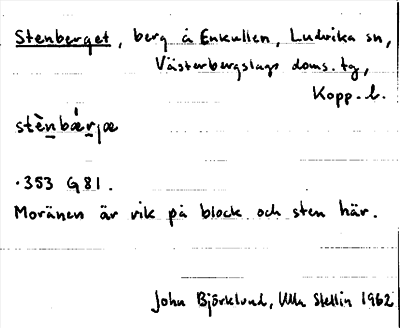 Stenberget, berg å Enkullen, Ludvika sn,
Västerbergslags doms. tg,
Kopp. l.
stè̱nbǽrjæ
.353 G81.
Moränen är rik på block och sten här.
John Björklund, Stellin 1962